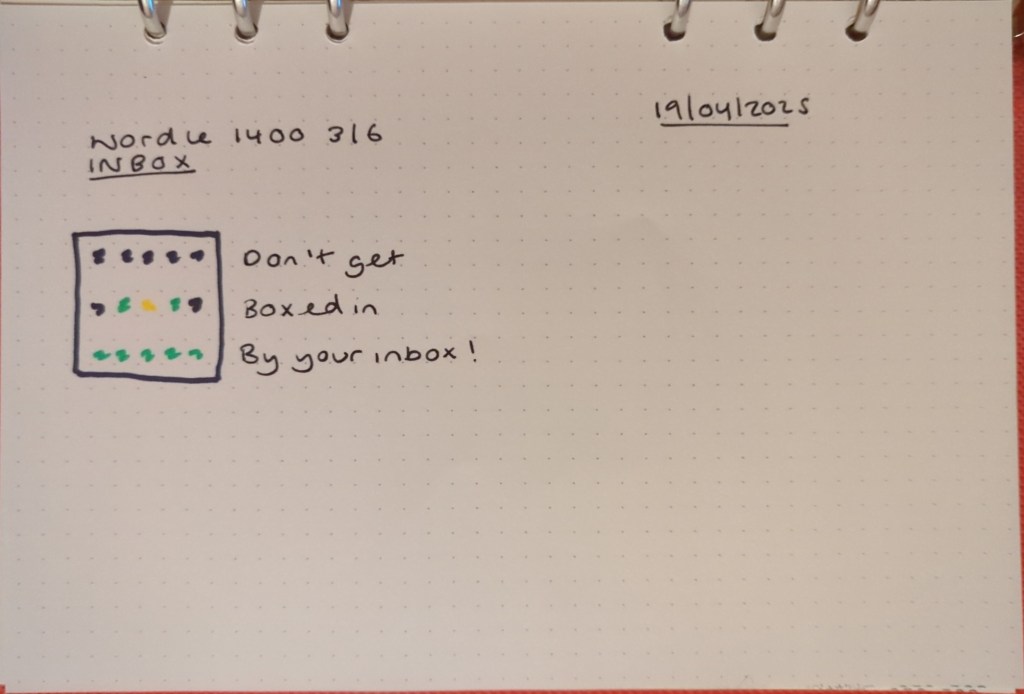 19/04/2025
Wordle 1400 3/6
INBOX
Don't get
Boxed in
By your inbox!